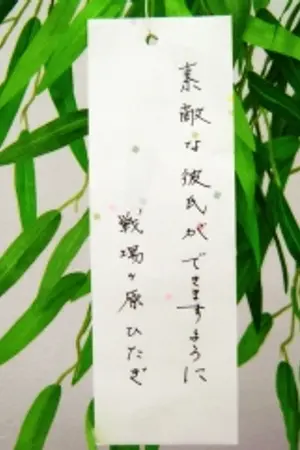 素敵な彼氏ができますように
戦場ヶ原ひたぎ